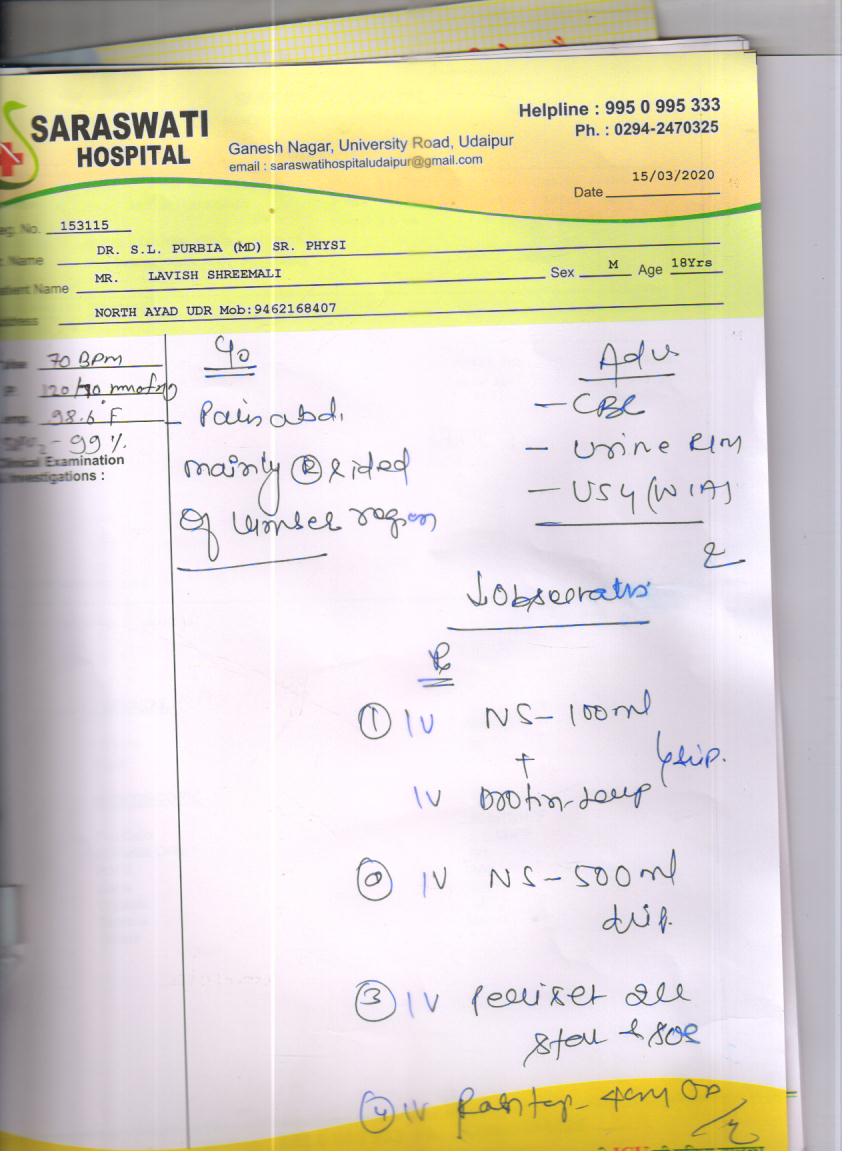 SARASWATI
HOSPITAL
Ganesh Nagar, University Road, Udaipur
email : saraswatihospitaludaipur@gmail.com
Helpline : 995 0 995 333
Ph. : 0294-2470325
Date 15/03/2020
eg. No. 153115
Name DR. S.L. PURBIA (MD) SR. PHYSI
tient Name MR. LAVISH SHREEMALI Sex M Age 18Yrs
ddress NORTH AYAD UDR Mob:9462168407
70 BPM
120/70 mmofHg
98.6°F
SPO2 - 99%
Clinical Examination
Investigations :
C/o
- Pain abd.
mainly (R) sided
of region
Adv
- CBC
- Urine R/M
- USG (W/A)
Rx
① IV NS - 100ml
+
IV
drip.
IV NS - 500ml
drip.
③ IV
stat & SOS
④ IV